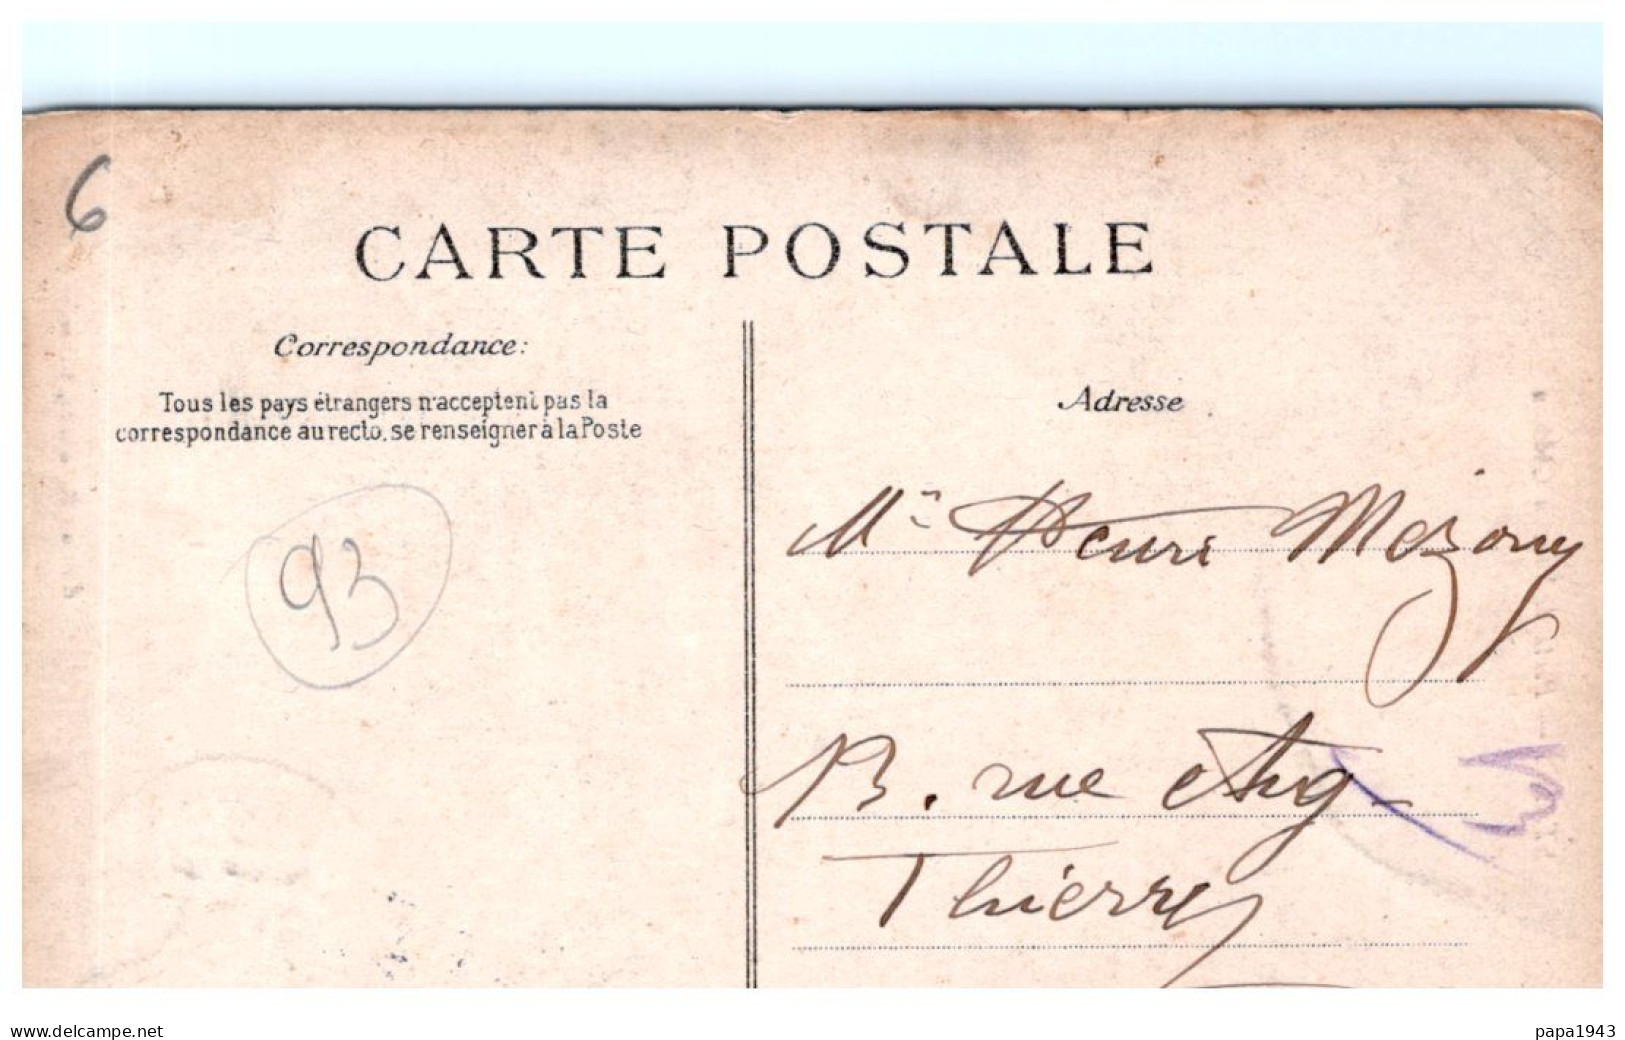 6
CARTE POSTALE
Correspondance:
Tous les pays étrangers n'acceptent pas la
correspondance au recto, se renseigner à la Poste
93
Adresse
Mr Henri Mezony
13. rue Aug-
Thierry
www.delcampe.net
papa1943